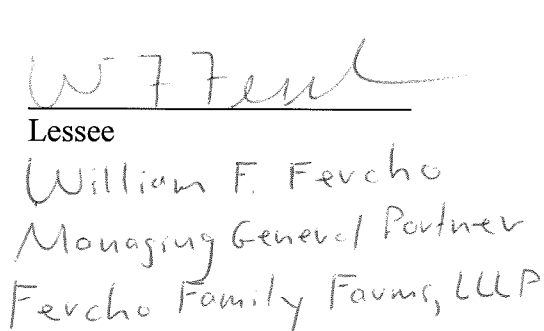 W F Ferch
Lessee
William F. Fercho
Managing General Partner
Fercho Family Farms, LLLP